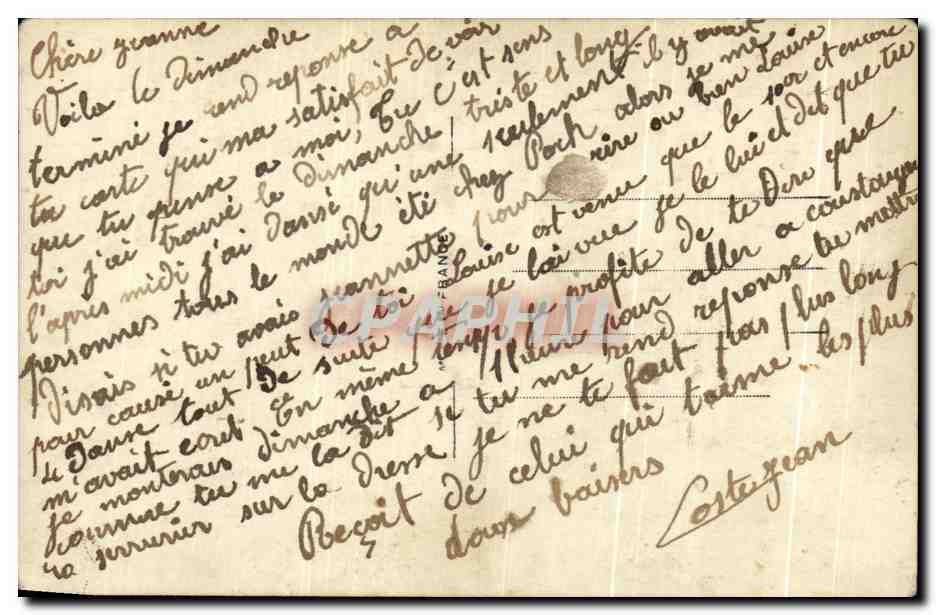 Chère yvonne
Voila le dimandre
terminé je rend reponse a
ta carte qui ma satisfait de voir
que tu pense a moi, Tu C'est sens
toi j'ai trouvé le dimanche triste et long
l'apres midi j'ai dansé qu'une seulement il y avait
personnes tous le monde été chez Poch alors je me
disais si tu avais jeannette pour rire ou bien Louise
pour causé un peut de toi Louise est venu que le soir et encore
4 Danse tout de suite je l'ai vue je le lui et dit que tu
m'avait ecrit En même temps je profite de te Dire que
je monterais dimanche a pour aller a
comme tu me la dit si tu me rend reponse tu mettra
serrurier sur la Dresse je ne te fait pas plus long
Reçoit de celui qui t'aime les plus
doux baisers
Coste jean
FRANCE
CPAPHIL